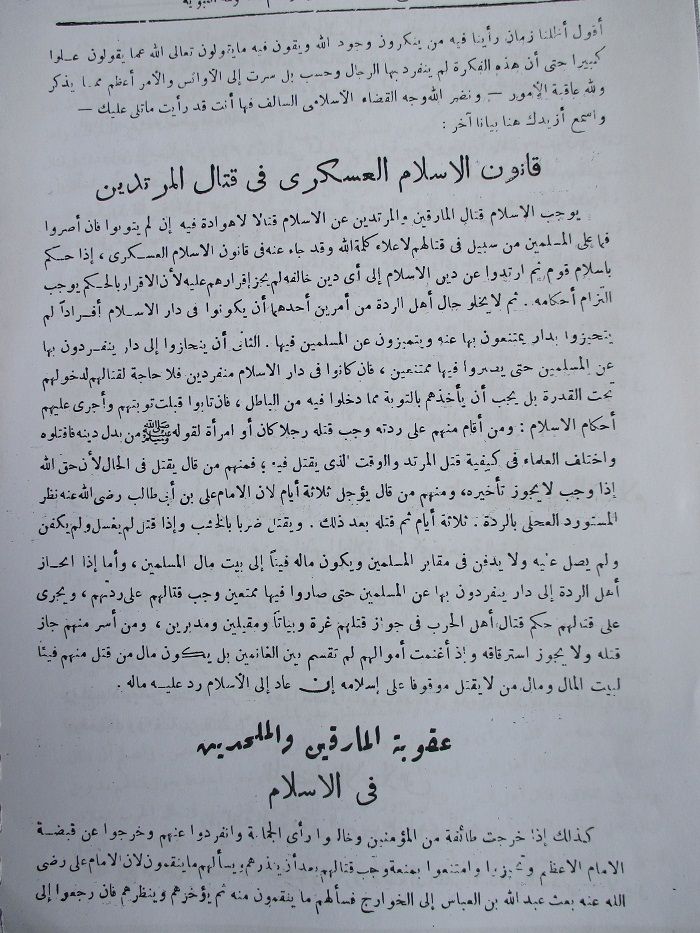 أقول أظلنا زمان رأينا فيه من ينكرون وجود الله ويقون فيه مايتولون تعالى الله عما يقولون علوا
كبيرا حتى أن هذه الفكرة لم ينفرد بها الرجال وحسب بل سرت إلى الأوانس والأمر أعظم مما يذكر
ولله عاقبة الأمور — ونضر الله وجه القضاء الاسلامى السالف فها أنت قد رأيت ماتلى عليك —
واسمع أزيدك هنا بيانا آخر :
قانون الاسلام العسكرى فى قتال المرتدين
يوجب الاسلام قتال المارقين والمرتدين عن الاسلام قتالا لاهوادة فيه إن لم يتوبوا فان أصروا
فما على المسلمين من سبيل فى قتالهم لاعلاء كلمة الله وقد جاء عنه فى قانون الاسلام العسكرى ، إذا حكم
باسلام قوم ثم ارتدوا عن دين الاسلام إلى أى دين خالفه لم يجز إقرارهم عليه لأن الاقرار بالحكم يوجب
التزام أحكامه . ثم لا يخلو حال أهل الردة من أمرين أحدهما أن يكونوا فى دار الاسلام أفراداً لم
يتحيزوا بدار يمتنعون بها عنه ويتميزون عن المسلمين فيها . الثانى أن ينحازوا إلى دار ينفردون بها
عن المسلمين حتى يصيروا فيها ممتنعين ، فان كانوا فى دار الاسلام منفردين فلا حاجة لقتالهم لدخولهم
تحت القدرة بل يجب أن يأخذهم بالتوبة مما دخلوا فيه من الباطل ، فان تابوا قبلت توبتهم وأجرى عليهم
أحكام الاسلام : ومن أقام منهم على ردته وجب قتله رجلا كان أو امرأة لقوله ﷺ من بدل دينه فاقتلوه
واختلف العلماء فى كيفية قتل المرتد والوقت الذى يقتل فيه ؛ فمنهم من قال يقتل فى الحال لأن حق الله
إذا وجب لا يجوز تأخيره، ومنهم من قال يؤجل ثلاثة أيام لان الامام على بن أبى طالب رضى الله عنه نظر
المستورد العجلى بالردة . ثلاثة أيام ثم قتله بعد ذلك . ويقتل ضربا بالخشب وإذا قتل لم يغسل ولم يكفن
ولم يصل عليه ولا يدفن فى مقابر المسلمين ويكون ماله فيئاً إلى بيت مال المسلمين ، وأما إذا انحاز
أهل الردة إلى دار ينفردون بها عن المسلمين حتى صاروا فيها ممتعين وجب قتالهم على ردتهم ، ويجرى
على قتالهم حكم قتال أهل الحرب فى جواز قتلهم غرة وبياتاً ومقبلين ومدبرين ، ومن أسر منهم جاز
قتله ولا يجوز استرقاقه وإذ أغنمت أموالهم لم تقسم بين الغانمين بل يكون مال من قتل منهم فيئا
لبيت المال ومال من لا يقتل موقوفا على إسلامه إن عاد إلى الاسلام رد عليه ماله .
عقوبة المارقين والملحدين
فى الاسلام
كذلك إذا خرجت طائفة من المؤمنين وخالفوا رأى الجماعة وانفردوا عنهم وخرجوا عن قبضة
الامام الاعظم وتميزوا وامتنعوا بمنعة وجب قتالهم بعد أن ينذرهم ويسألهم ما ينقمون لان الامام على رضى
الله عنه بعث عبد الله بن العباس إلى الخوارج فسألهم ما ينقمون منه ثم يؤخرهم وينظرهم فان رجعوا إلى